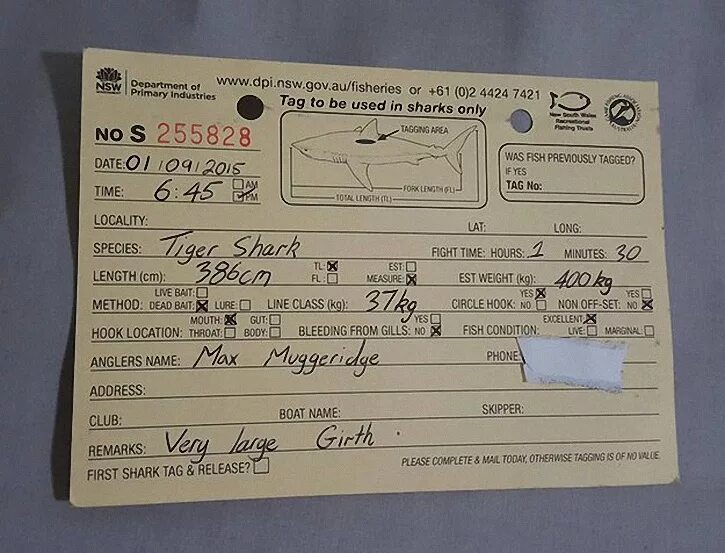 NSW Department of Primary Industries
www.dpi.nsw.gov.au/fisheries or +61 (0)2 4424 7421
New South Wales Recreational Fishing Trusts
Tag to be used in sharks only
TAGGING AREA
FORK LENGTH (FL)
TOTAL LENGTH (TL)
No S 255828
WAS FISH PREVIOUSLY TAGGED?
IF YES
TAG No:
DATE: 01/09/2015
TIME: 6:45 AM PM
LOCALITY: LAT: LONG:
SPECIES: Tiger Shark FIGHT TIME: HOURS: 1 MINUTES: 30
LENGTH (cm): 386cm TL: FL: EST: MEASURE: EST WEIGHT (kg): 400kg
METHOD: LIVE BAIT: DEAD BAIT: LURE: LINE CLASS (kg): 37kg CIRCLE HOOK: YES NO NON OFF-SET: YES NO
HOOK LOCATION: MOUTH: GUT: THROAT: BODY: BLEEDING FROM GILLS: YES NO FISH CONDITION: EXCELLENT: LIVE: MARGINAL:
ANGLERS NAME: Max Muggeridge PHONE:
ADDRESS:
CLUB: BOAT NAME: SKIPPER:
REMARKS: Very large Girth.
FIRST SHARK TAG & RELEASE? PLEASE COMPLETE & MAIL TODAY, OTHERWISE TAGGING IS OF NO VALUE.